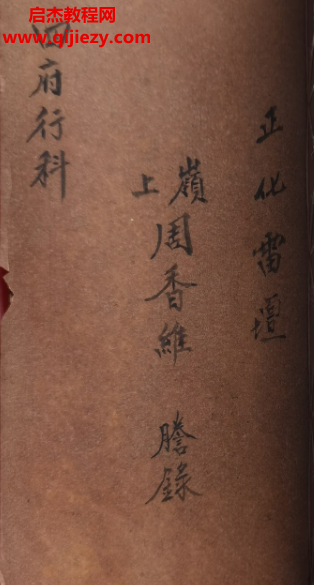 启杰教育网
www.qljiezy.com
正化雷壇
嶺上周香維 謄錄
四府行科